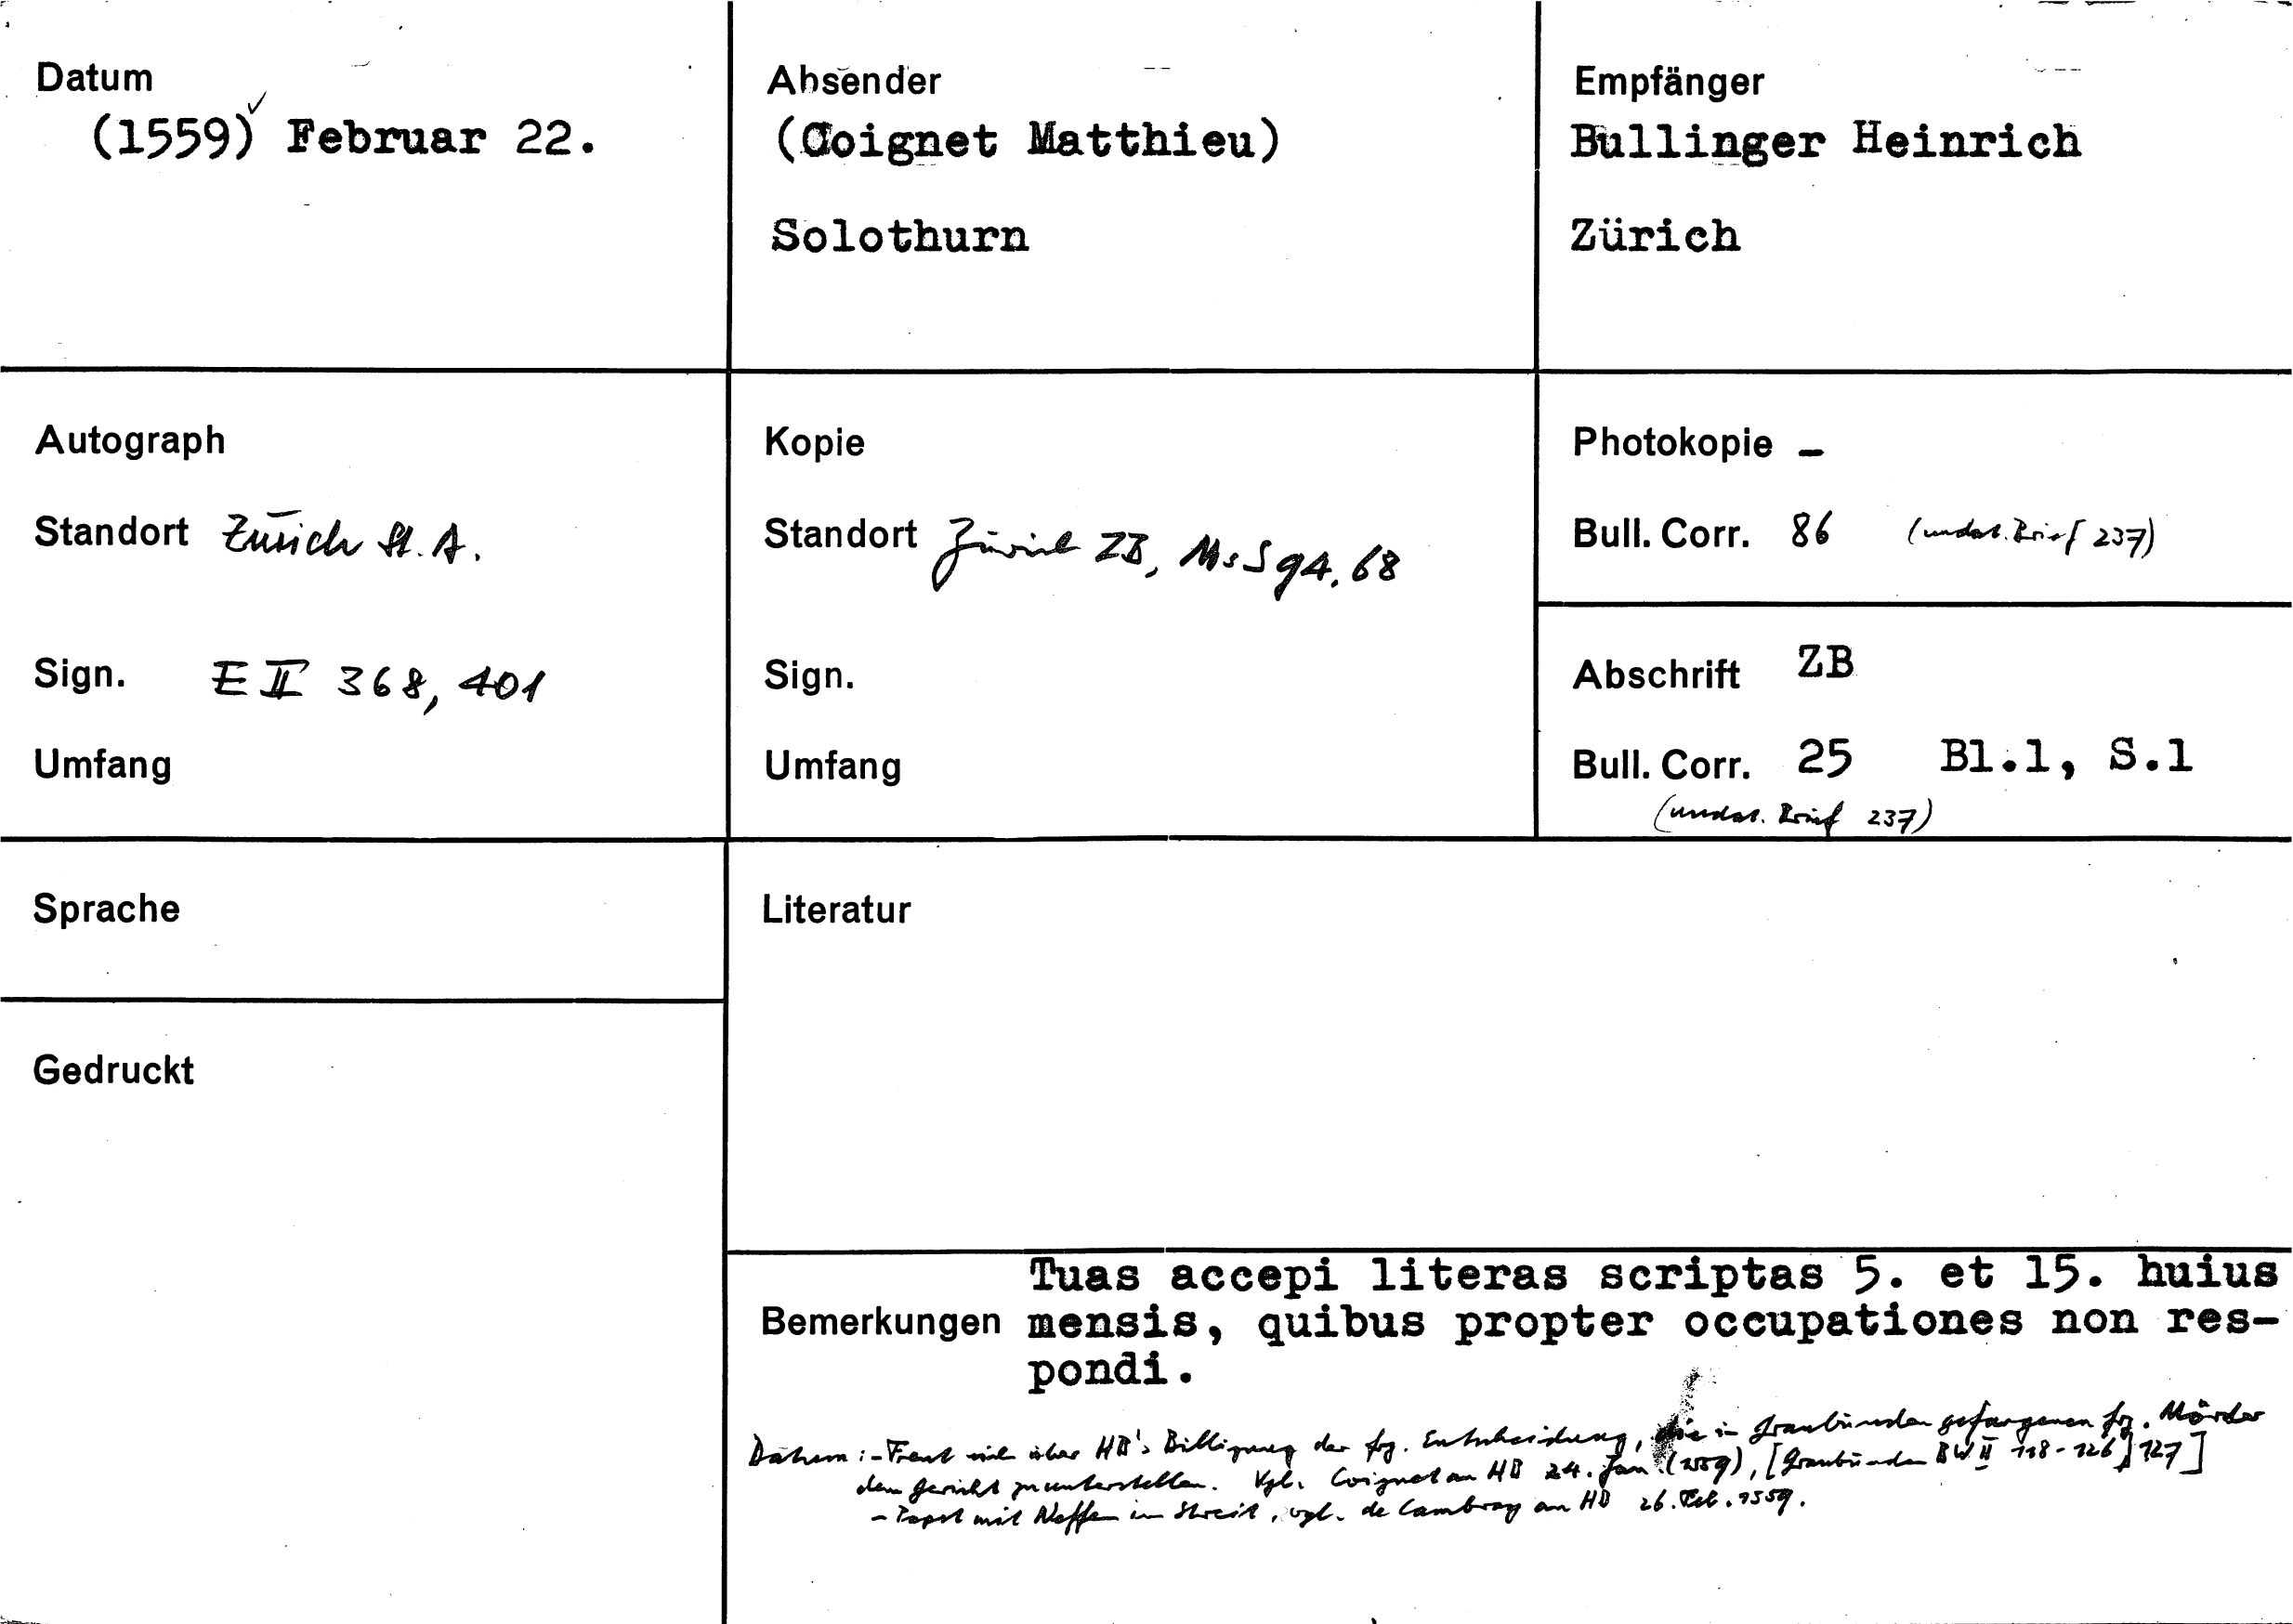 Datum
(1559) ✓ Februar 22.
Absender
(Coignet Matthieu)
Solothurn
Empfänger
Bullinger Heinrich
Zürich
Autograph
Standort Zürich St. A.
Sign. E II 368, 401
Umfang
Kopie
Standort Zürich ZB, Ms S 94, 68
Sign.
Umfang
Photokopie –
Bull. Corr. 86 (undat. Brief 237)
Abschrift ZB
Bull. Corr. 25 Bl.1, S.1
(undat. Brief 237)
Sprache
Gedruckt
Literatur
Bemerkungen
Tuas accepi literas scriptas 5. et 15. huius
mensis, quibus propter occupationes non res-
pondi.
Datum: - Freut sich über HB's Billigung der frz. Entscheidung, die in Graubünden gefangenen frz. Mörder
dem Gericht zu unterstellen. Vgl. Coignet an HB 24. Jan. (1559), [Graubünden BW II 118-126, 127]
- Papst mit Neffen im Streit, vgl. de Cambray an HB 26. Feb. 1559.